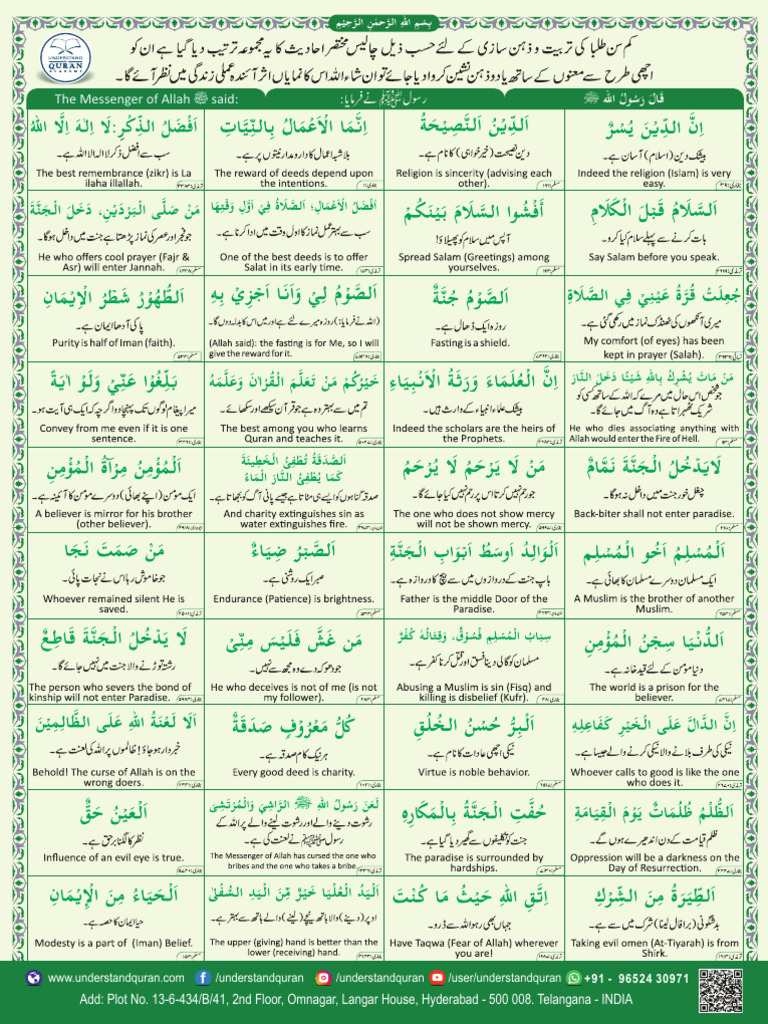 بِسْمِ اللهِ الرَّحْمٰنِ الرَّحِيْمِ
UNDERSTAND
QURAN
ACADEMY
کم سن طلبا کی تربیت و ذہن سازی کے لئے حسب ذیل چالیس مختصر احادیث کا یہ مجموعہ ترتیب دیا گیا ہے ان کو
اچھی طرح سے معنوں کے ساتھ یاد و ذہن نشین کروا دیا جائے تو ان شاء اللہ اس کا نمایاں اثر آئندہ عملی زندگی میں نظر آئے گا۔
قَالَ رَسُوْلُ اللهِ ﷺ
رسول ﷺ نے فرمایا:
The Messenger of Allah ﷺ said:
اِنَّ الدِّيْنَ يُسْرٌ
بیشک دین (اسلام) آسان ہے۔
Indeed the religion (Islam) is very
easy.
اَلدِّيْنُ النَّصِيْحَةُ
دین نصیحت (خیر خواہی) کا نام ہے۔
Religion is sincerity (advising each
other).
اِنَّمَا الْاَعْمَالُ بِالنِّيَّاتِ
بلاشبہ اعمال کا دارومدار نیتوں پر ہے۔
The reward of deeds depend upon
the intentions.
اَفْضَلُ الذِّكْرِ: لَا اِلٰهَ اِلَّا اللهُ
سب سے افضل ذکر لا الہ الا اللہ ہے۔
The best remembrance (zikr) is La
ilaha illallah.
اَلسَّلَامُ قَبْلَ الْكَلَامِ
بات کرنے سے پہلے سلام کیا کرو۔
Say Salam before you speak.
أَفْشُوا السَّلَامَ بَيْنَكُمْ
آپس میں سلام کو پھیلاؤ!
Spread Salam (Greetings) among
yourselves.
اَفْضَلُ الْاَعْمَالِ: الصَّلَاةُ فِيْ اَوَّلِ وَقْتِهَا
سب سے بہتر عمل نماز کا اول وقت میں ادا کرنا ہے۔
One of the best deeds is to offer
Salat in its early time.
مَنْ صَلَّى الْبَرْدَيْنِ، دَخَلَ الْجَنَّةَ
جو فجر اور عصر کی نماز پڑھتا ہے جنت میں داخل ہوگا۔
He who offers cool prayer (Fajr &
Asr) will enter Jannah.
جُعِلَتْ قُرَّةُ عَيْنِيْ فِي الصَّلَاةِ
میری آنکھوں کی ٹھنڈک نماز میں رکھی گئی ہے۔
My comfort (of eyes) has been
kept in prayer (Salah).
اَلصَّوْمُ جُنَّةٌ
روزہ ایک ڈھال ہے۔
Fasting is a shield.
اَلصَّوْمُ لِيْ وَاَنَا اَجْزِيْ بِهِ
(اللہ نے فرمایا:) روزہ میرے لئے ہے اور میں اس کا بدلہ دوں گا۔
(Allah said): the fasting is for Me, so I will
give the reward for it.
اَلطُّهُوْرُ شَطْرُ الْاِيْمَانِ
پاکی آدھا ایمان ہے۔
Purity is half of Iman (faith).
مَنْ مَاتَ يُشْرِكُ بِاللهِ شَيْئًا دَخَلَ النَّارَ
جو شخص اس حال میں مرے کہ اللہ کے ساتھ کسی کو
شریک ٹھہراتا ہے وہ آگ میں جائے گا۔
He who dies associating anything with
Allah would enter the Fire of Hell.
اِنَّ الْعُلَمَاءَ وَرَثَةُ الْاَنْبِيَاءِ
بیشک علماء انبیاء کے وارث ہیں۔
Indeed the scholars are the heirs of
the Prophets.
خَيْرُكُمْ مَنْ تَعَلَّمَ الْقُرْاٰنَ وَعَلَّمَهُ
تم میں سے بہتر وہ ہے جو قرآن سیکھے اور سکھائے۔
The best among you who learns
Quran and teaches it.
بَلِّغُوْا عَنِّيْ وَلَوْ اٰيَةً
میرا پیغام لوگوں تک پہنچا دو اگرچہ کہ ایک ہی آیت ہو۔
Convey from me even if it is one
sentence.
لَا يَدْخُلُ الْجَنَّةَ نَمَّامٌ
چغل خور جنت میں داخل نہ ہوگا۔
Back-biter shall not enter paradise.
مَنْ لَا يَرْحَمُ لَا يُرْحَمُ
جو رحم نہیں کرتا اس پر رحم نہیں کیا جائے گا۔
The one who does not show mercy
will not be shown mercy.
اَلصَّدَقَةُ تُطْفِئُ الْخَطِيْئَةَ
كَمَا يُطْفِئُ النَّارَ الْمَاءُ
صدقہ گناہوں کو ایسے ہی مٹاتا ہے جیسے پانی آگ کو بجھاتا ہے۔
And charity extinguishes sin as
water extinguishes fire.
اَلْمُؤْمِنُ مِرْآةُ الْمُؤْمِنِ
ایک مؤمن (اپنے بھائی) دوسرے مؤمن کا آئینہ ہے۔
A believer is mirror for his brother
(other believer).
اَلْمُسْلِمُ اَخُو الْمُسْلِمِ
ایک مسلمان دوسرے مسلمان کا بھائی ہے۔
A Muslim is the brother of another
Muslim.
اَلْوَالِدُ اَوْسَطُ اَبْوَابِ الْجَنَّةِ
باپ جنت کے دروازوں میں سے بیچ کا دروازہ ہے۔
Father is the middle Door of the
Paradise.
اَلصَّبْرُ ضِيَاءٌ
صبر ایک روشنی ہے۔
Endurance (Patience) is brightness.
مَنْ صَمَتَ نَجَا
جو خاموش رہا اس نے نجات پائی۔
Whoever remained silent He is
saved.
اَلدُّنْيَا سِجْنُ الْمُؤْمِنِ
دنیا مومن کے لئے قید خانہ ہے۔
The world is a prison for the
believer.
سِبَابُ الْمُسْلِمِ فُسُوْقٌ، وَقِتَالُهُ كُفْرٌ
مسلمان کو گالی دینا فسق اور قتل کرنا کفر ہے۔
Abusing a Muslim is sin (Fisq) and
killing is disbelief (Kufr).
مَنْ غَشَّ فَلَيْسَ مِنِّيْ
جو دھوکہ دے وہ مجھ سے نہیں۔
He who deceives is not of me (is not
my follower).
لَا يَدْخُلُ الْجَنَّةَ قَاطِعٌ
رشتہ توڑنے والا جنت میں نہیں جائے گا۔
The person who severs the bond of
kinship will not enter Paradise.
اِنَّ الدَّالَّ عَلَى الْخَيْرِ كَفَاعِلِهِ
نیکی کی طرف بلانے والا نیکی کرنے والے جیسا ہے۔
Whoever calls to good is like the one
who does it.
اَلْبِرُّ حُسْنُ الْخُلُقِ
نیکی اچھی عادات کا نام ہے۔
Virtue is noble behavior.
كُلُّ مَعْرُوْفٍ صَدَقَةٌ
ہر نیک کام صدقہ ہے۔
Every good deed is charity.
اَلَا لَعْنَةُ اللهِ عَلَى الظَّالِمِيْنَ
خبردار ہو جاؤ! ظالموں پر اللہ کی لعنت ہے۔
Behold! The curse of Allah is on the
wrong doers.
اَلظُّلْمُ ظُلُمَاتٌ يَوْمَ الْقِيَامَةِ
ظلم قیامت کے دن اندھیرے ہوں گے۔
Oppression will be a darkness on the
Day of Resurrection.
حُفَّتِ الْجَنَّةُ بِالْمَكَارِهِ
جنت کو تکلیفوں سے گھیر دیا گیا ہے۔
The paradise is surrounded by
hardships.
لَعَنَ رَسُوْلُ اللهِ ﷺ الرَّاشِيَ وَالْمُرْتَشِيَ
رشوت دینے والے اور رشوت لینے والے پر اللہ کے
رسول ﷺ نے لعنت کی ہے۔
The Messenger of Allah has cursed the one who
bribes and the one who takes a bribe.
اَلْعَيْنُ حَقٌّ
نظر کا لگنا برحق ہے۔
Influence of an evil eye is true.
اَلطِّيَرَةُ مِنَ الشِّرْكِ
بدشگونی (برا فال لینا) شرک میں سے ہے۔
Taking evil omen (At-Tiyarah) is from
Shirk.
اِتَّقِ اللهِ حَيْثُ مَا كُنْتَ
جہاں بھی رہو اللہ سے ڈرو۔
Have Taqwa (Fear of Allah) wherever
you are!
اَلْيَدُ الْعُلْيَا خَيْرٌ مِّنَ الْيَدِ السُّفْلٰى
اوپر (دینے) والا ہاتھ نیچے (لینے) والے ہاتھ سے بہتر ہے۔
The upper (giving) hand is better than the
lower (receiving) hand.
اَلْحَيَاءُ مِنَ الْاِيْمَانِ
حیا ایمان کا حصہ ہے۔
Modesty is a part of (Iman) Belief.
www.understandquran.com /understandquran /understandquran /user/understandquran +91 - 96524 30971
Add: Plot No. 13-6-434/B/41, 2nd Floor, Omnagar, Langar House, Hyderabad - 500 008. Telangana - INDIA